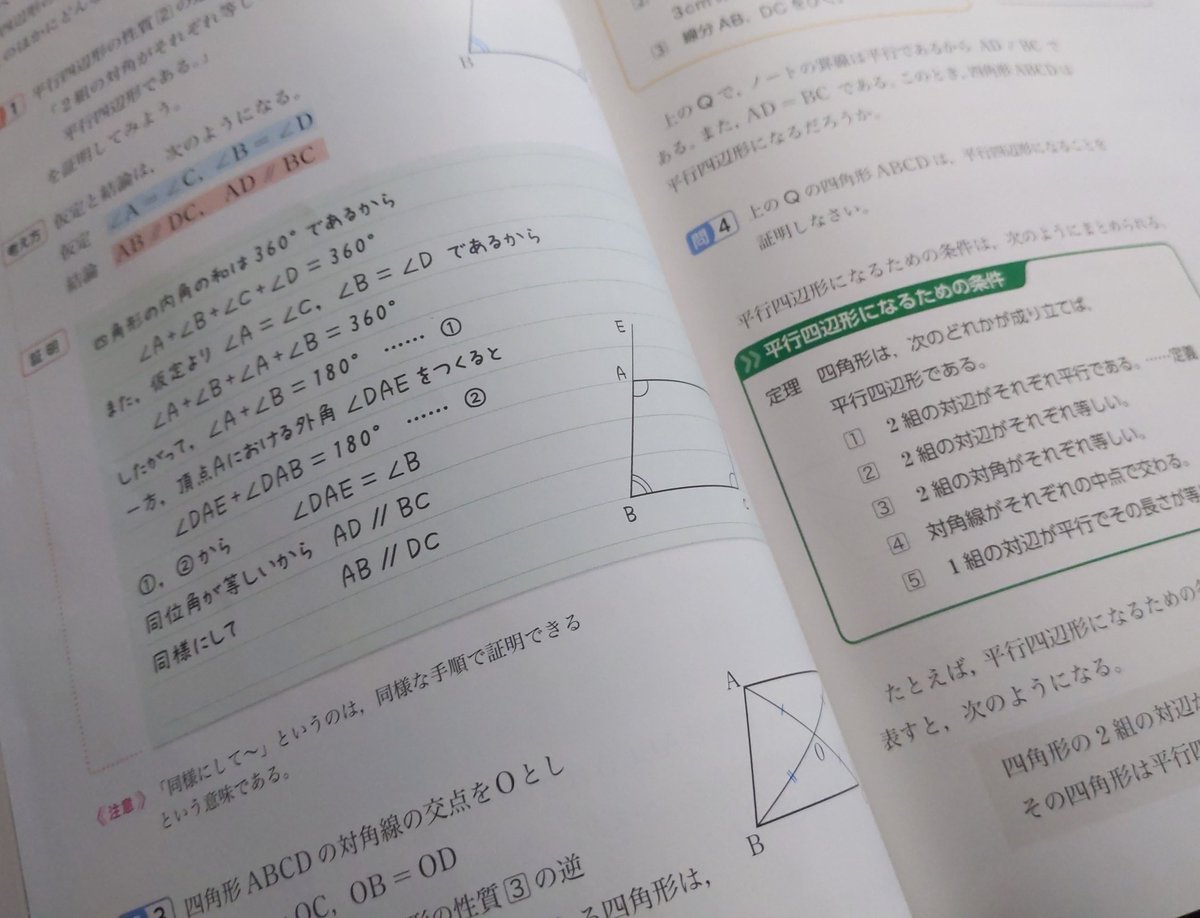 のほかにどん
平行四辺形の性質②の
1
「2組の対角がそれぞれ等し
平行四辺形である。」
を証明してみよう。
考え方
仮定と結論は、次のようになる。
仮定 ∠A=∠C, ∠B=∠D
結論 AB∥DC, AD∥BC
証明
四角形の内角の和は360°であるから
∠A+∠B+∠C+∠D=360°
また、仮定より ∠A=∠C, ∠B=∠D であるから
∠A+∠B+∠A+∠B=360°
したがって、∠A+∠B=180° …… ①
一方、頂点Aにおける外角 ∠DAE をつくると
∠DAE+∠DAB=180° …… ②
①, ②から ∠DAE=∠B
同位角が等しいから AD∥BC
同様にして AB∥DC
E
A
B
C
B
《注意》「同様にして〜」というのは, 同様な手順で証明できる
という意味である。
3 四角形ABCDの対角線の交点をOとし
OC, OB=OD
形の性質③の逆
る四角形は,
A
O
B
3cm
③ 線分AB, DCをひく。
上のQで, ノートの罫線は平行であるから AD∥BC で
ある。また, AD=BC である。このとき, 四角形ABCDは
平行四辺形になるだろうか。
問4 上のQの四角形ABCDは, 平行四辺形になることを
証明しなさい。
平行四辺形になるための条件は, 次のようにまとめられる。
平行四辺形になるための条件
定理 四角形は, 次のどれかが成り立てば,
平行四辺形である。
① 2組の対辺がそれぞれ平行である。……定義
② 2組の対辺がそれぞれ等しい。
③ 2組の対角がそれぞれ等しい。
④ 対角線がそれぞれの中点で交わる。
⑤ 1組の対辺が平行でその長さが等
たとえば, 平行四辺形になるための条
表すと, 次のようになる。
四角形の2組の対辺が
その四角形は平行四